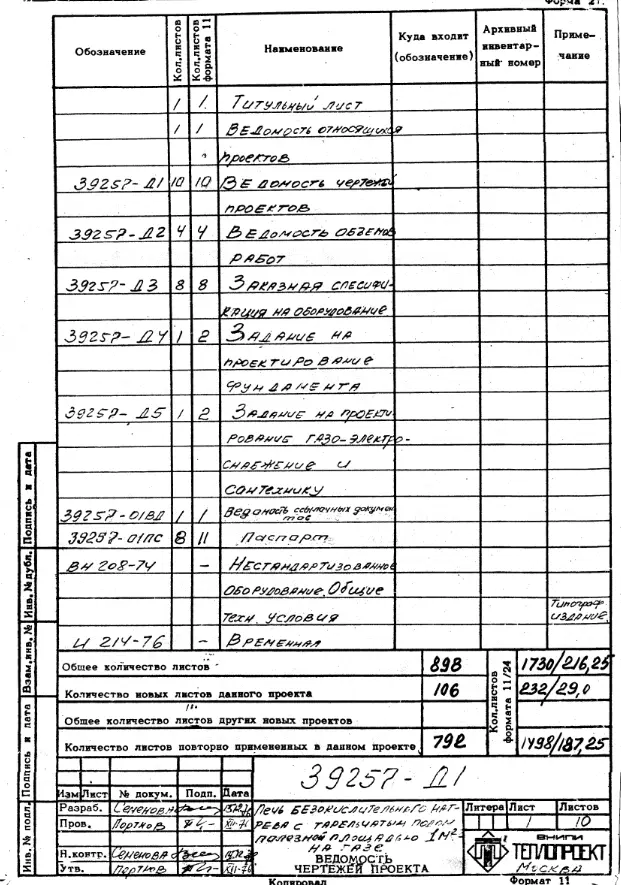 Форма 21.
Обозначение Кол.листов Кол.листов формата 11 Наименование Куда входит (обозначение) Архивный инвентар- ный номер Приме- чание
1 1 Титульный лист
1 1 Ведомость относящихся
проектов
39257-Д1 10 10 Ведомость чертежей
проектов
39257-Д2 4 4 Ведомость объемов
работ
39257-Д3 8 8 Заказная специфи-
кация на оборудование
39257-Д4 1 2 Задание на
проектирование
фундамента
39257-Д5 1 2 Задание на проекти
рование газо-электро-
снабжение и
сантехнику
39257-01ВД 1 1 Ведомость ссылочных докумен
тов
39257-01ПС 8 11 Паспорт
ВН 208-74 — Нестандартизованное
оборудование. Общие
техн. условия Типограф
издание
И 214-76 - Временная
Общее количество листов 898 Кол.листов формата 11/24 1730/216,25
Количество новых листов данного проекта 106 232/29,0
Общее количество листов других новых проектов
Количество листов повторно примененных в данном проекте 792 1498/187,25
39257-Д1
Изм Лист № докум. Подп. Дата
Разраб. Семенова
Пров. Портнов
Н.контр. Семенова
Утв. Портнов
Печь безокислительного наг-
рева с тарельчатым подом
полезной площадью 1м²
на газе
ВЕДОМОСТЬ
ЧЕРТЕЖЕЙ ПРОЕКТА
Литера Лист Листов
1 10
ВНИПИ
ТЕПЛОПРОЕКТ
Москва
Копировал Формат 11
Инв. № подл. Подпись и дата Взам.инв. № Инв. № дубл. Подпись и дата